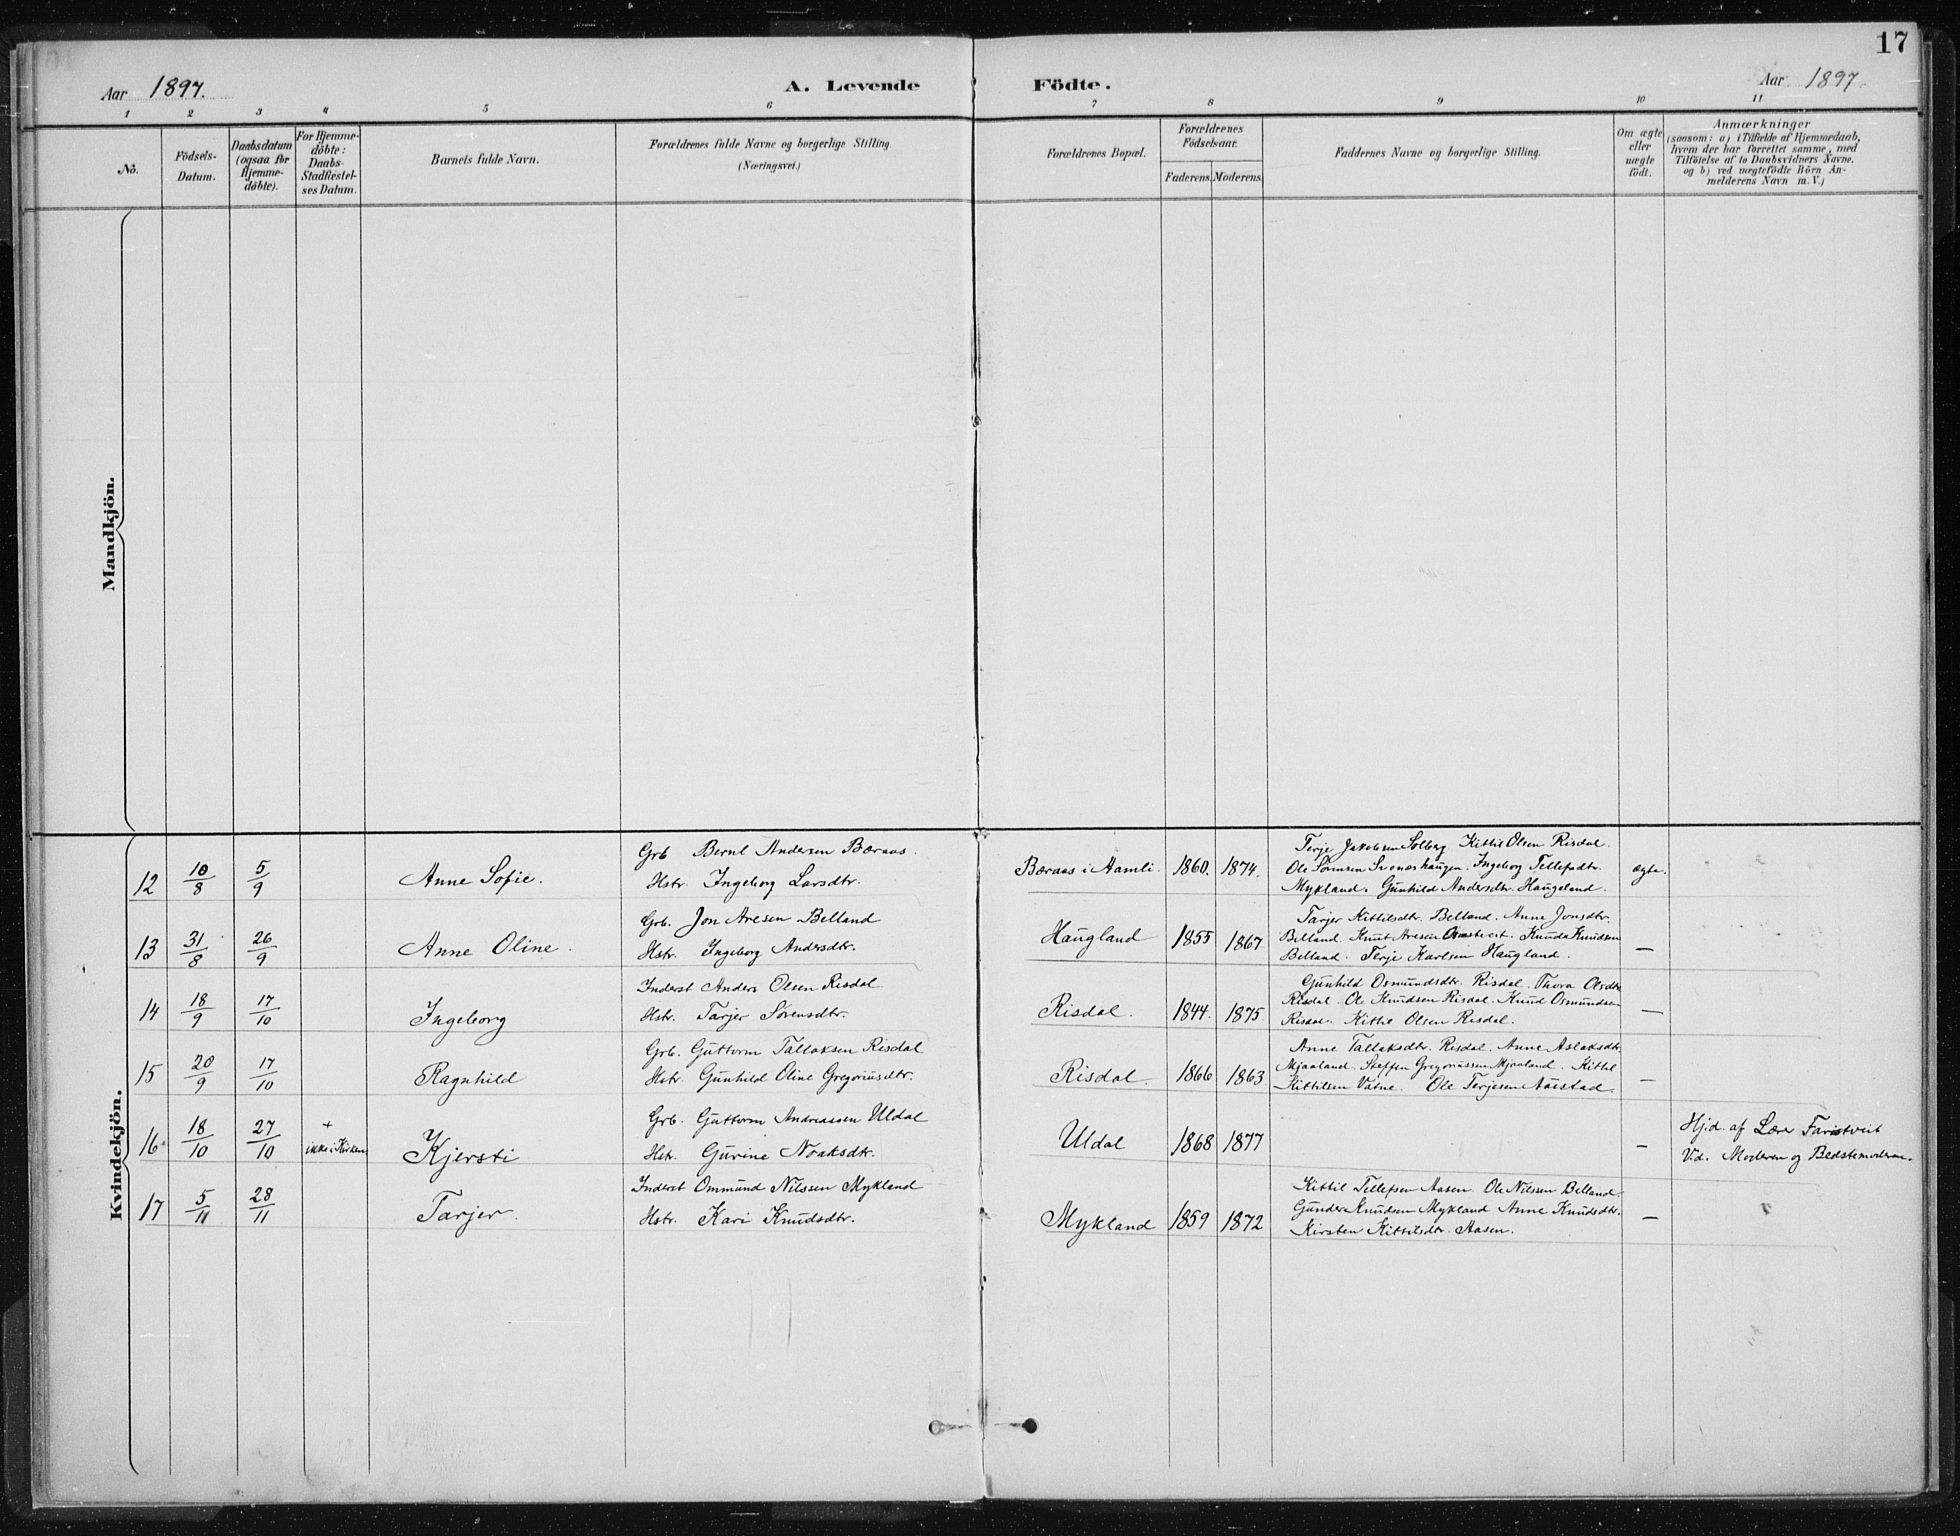 17
Aar 1897. A. Levende Födte. Aar 1897.
1 2 3 4 5 6 7 8 9 10 11
No.
Födsels-Datum.
Daabsdatum (ogsaa for Hjemme-döbte).
For Hjemme-döbte: Daabs-Stadfæstel-ses Datum.
Barnets fulde Navn.
Forældrenes fulde Navne og borgerlige Stilling
(Næringsvei.)
Forældrenes Bopæl.
Forældrenes Födselsaar.
Faderens. Moderens.
Faddernes Navne og borgerlige Stilling.
Om ægte eller uægte födt.
Anmærkninger
(saasom: a) i Tilfælde af Hjemmedaab,
hvem der har forrettet samme, med
Tilföielse af to Daabsvidners Navne.
og b) ved uægtefödte Börn An-
melderens Navn m. V.)
Mandkjön.
Kvindekjön.
12 10/8 5/9 Anne Sofie.
Grb Bernt Andersen Bæraas.
Hstr. Ingeborg Larsdtr.
Bæraas i Aamli. 1860. 1874.
Terje Jakobsen Solberg Kittil Olsen Risdal.
Ole Sörensen Svenashaugen. Ingeborg Tellefsdtr.
Mykland. Gunhild Andersdtr. Haugeland.
ægte.
13 31/8 26/9 Anne Oline.
Grb. Jon Aresen Belland
Hstr. Ingeborg Andersdtr.
Haugland 1855 1867
Tarjer Kittilsdtr. Belland. Anne Jonsdtr.
Belland. Knut Aresen Omstveit. Knuda Knudsen
Belland. Terje Karlsen Haugland.
—
14 18/9 17/10 Ingeborg
Inderst Anders Olsen Risdal
Hstr. Tarjer Sörensdtr.
Risdal. 1844. 1875
Gunhild Osmundsdtr. Risdal. Thora Olsdtr
Risdal. Ole Knudsen Risdal. Knud Osmundsen
Risdal. Kittil Olsen Risdal.
—
15 20/9 17/10 Ragnhild
Grb. Guttorm Tallaksen Risdal
Hstr. Gunhild Oline Gregoriusdtr.
Risdal. 1866 1863
Anne Tallaksdtr. Risdal. Anne Aslaksdtr.
Mjaaland. Steffen Gregoriussen Mjaaland. Kittil
Kittilsen Vatne. Ole Terjesen Aaestad.
—
16 18/10 27/10 + ikke i Kirken Kjersti
Grb. Guttorm Andreassen Uldal
Hstr. Gurine Noaksdtr.
Uldal 1868 1877
—
Hjd. af Lærer Faristveit
Vid. Moderen og Bedstemoderen.
17 5/11 28/11 Tarjer.
Inderst Ommund Nilssen Mykland
Hstr. Kari Knudsdtr.
Mykland 1859 1872
Kittil Tellefsen Aasen. Ole Nilssen Belland.
Gunder Knudsen Mykland Anne Knudsdtr.
Kirsten Kittilsdtr. Aasen.
—